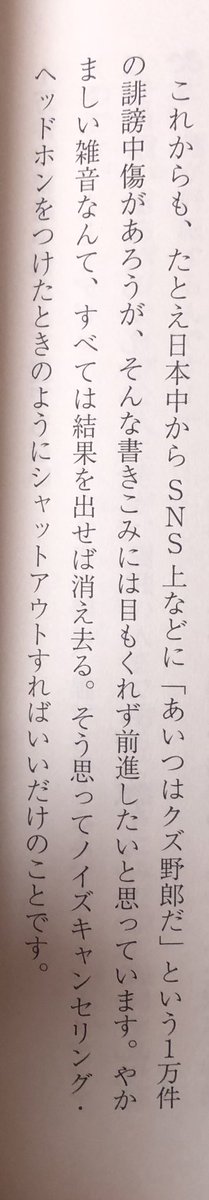 これからも、たとえ日本中からSNS上などに「あいつはクズ野郎だ」という1万件
の誹謗中傷があろうが、そんな書きこみには目もくれず前進したいと思っています。やか
ましい雑音なんて、すべては結果を出せば消え去る。そう思ってノイズキャンセリング・
ヘッドホンをつけたときのようにシャットアウトすればいいだけのことです。